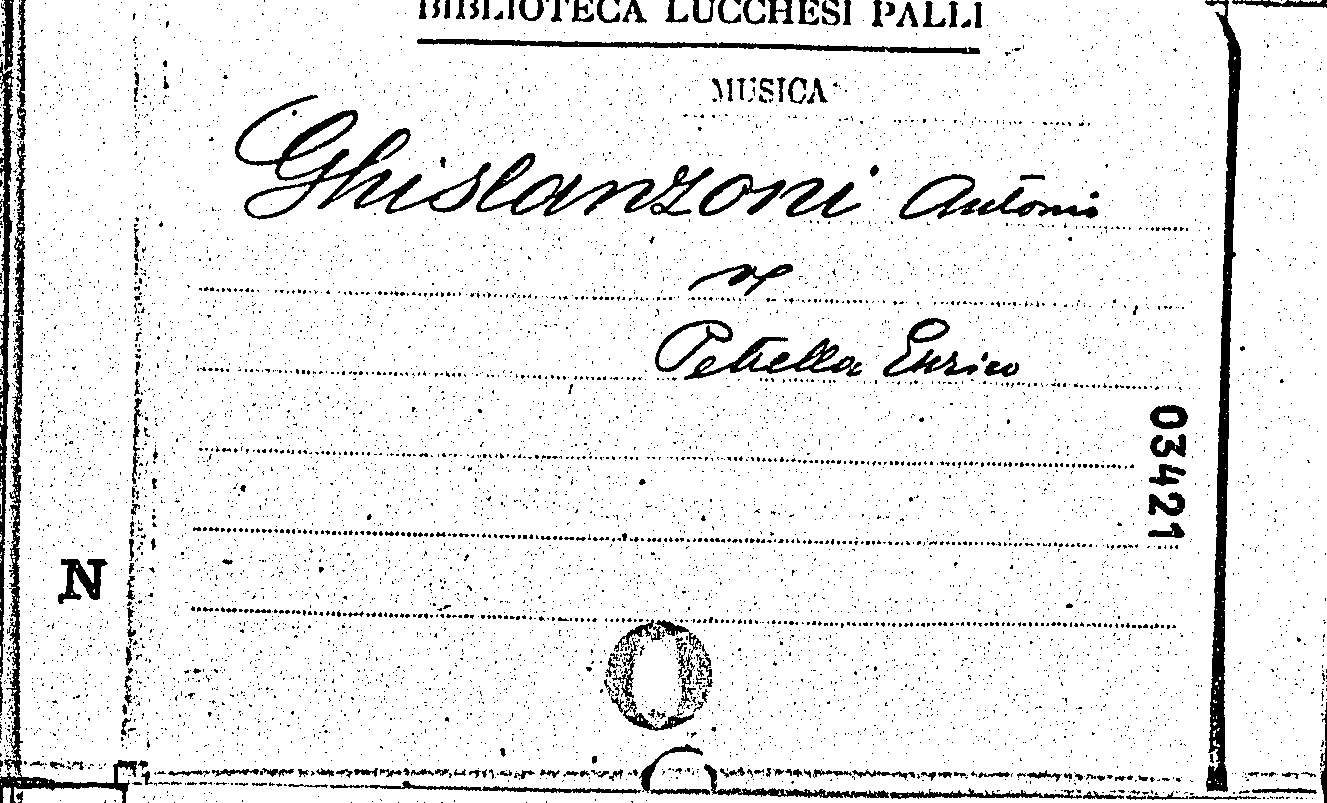 BIBLIOTECA LUCCHESI PALLI
MUSICA
Ghislanzoni Antonio
Petrella Enrico
03421
N